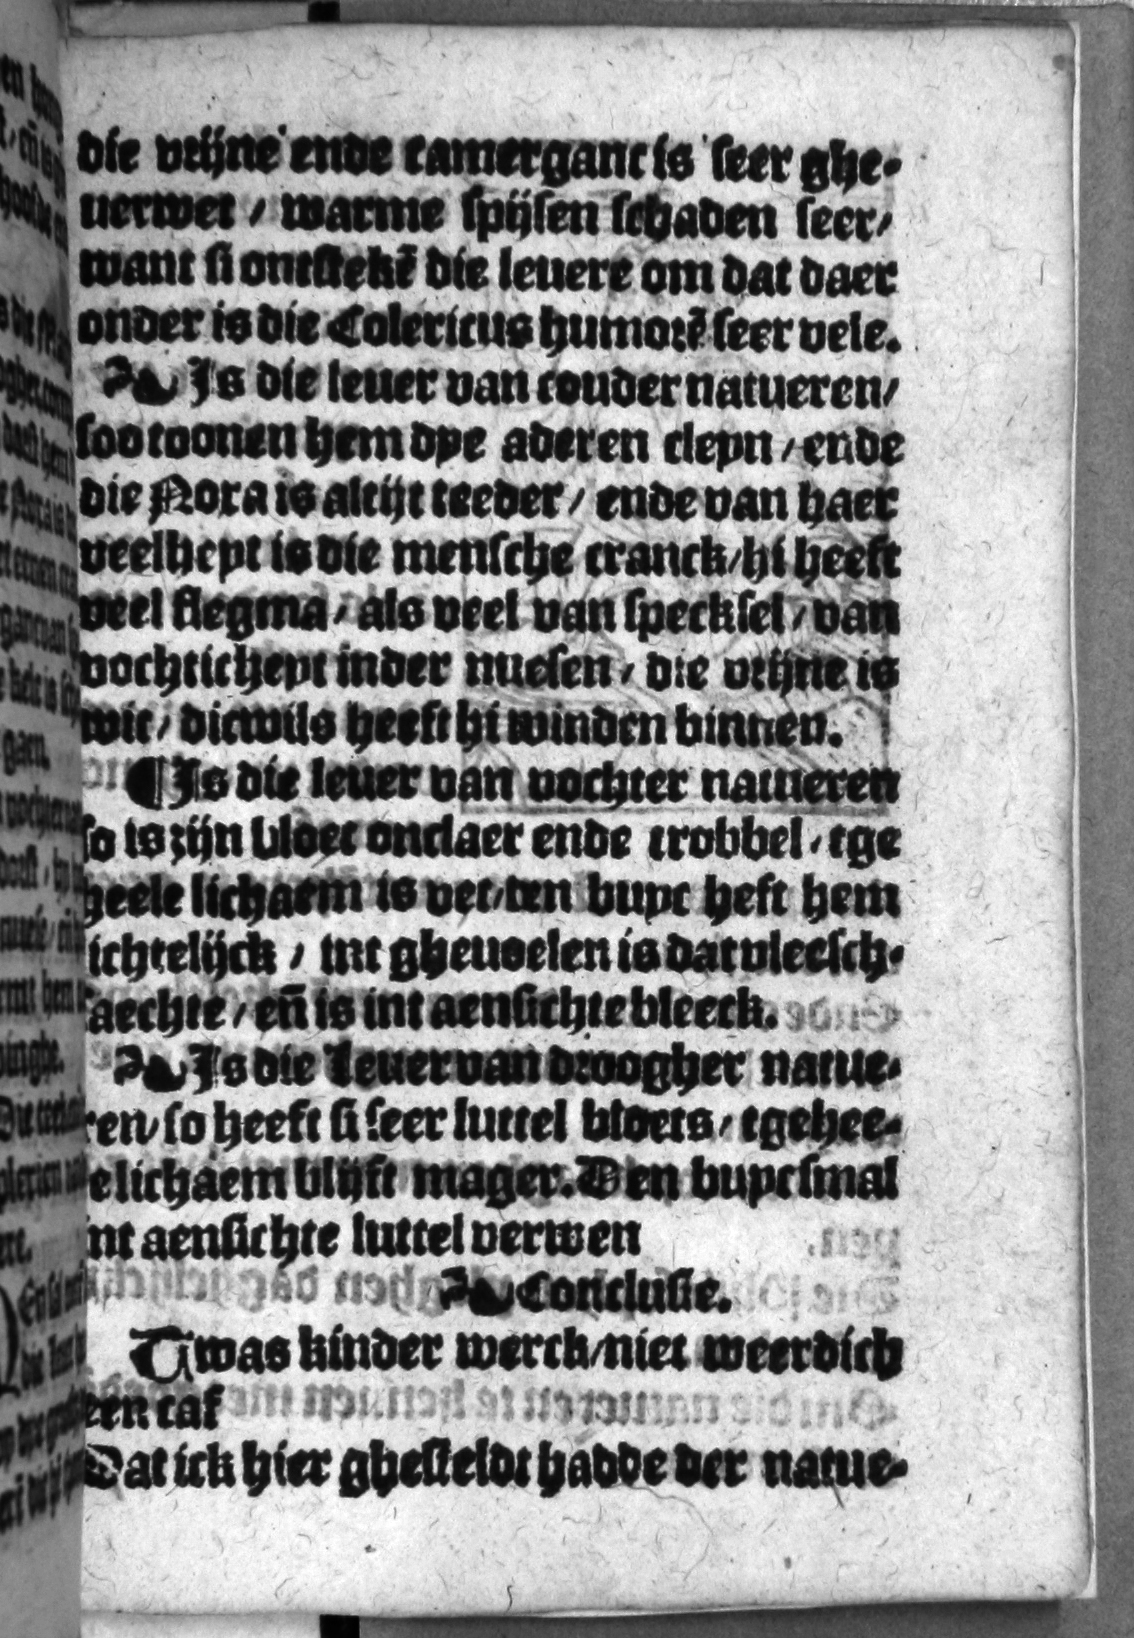 die vrijne ende camerganc is seer ghe-
uerwet / warme spijsen schaden seer/
want si ontstekē die leuere om dat daer
onder is die Colericus humorē seer vele.
❧ Is die leuer van couder natueren/
soo toonen hem dye aderen cleyn / ende
die Nora is altijt teeder / ende van haer
veelheyt is die mensche cranck/hi heeft
veel flegma / als veel van specksel / van
vochticheyt inder nuesen / die vrijne is
wit / dicwils heeft hi winden binnen.
¶ Is die leuer van vochter natueren
so is zijn bloet onclaer ende trobbel / tge
heele lichaem is vet/den buyc heft hem
ichtelijck / int gheuoelen is dat vleesch-
saechte / eñ is int aensichte bleeck.
❧ Is die leuer van droogher natue-
ren/so heeft si seer luttel bloets / tgehee-
e lichaem blijft mager. Den buyc smal
nt aensichte luttel verwen
❧ Conclusie.
Twas kinder werck/niet weerdich
een caf
Dat ick hier ghesteldt hadde der natue-